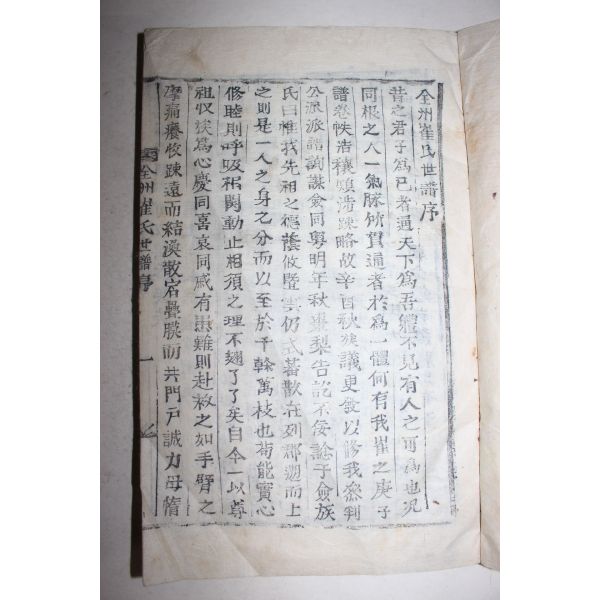 全州崔氏世譜序
昔之君子爲己者通天下爲吾體不見有人之可爲也況
同根之人一氣脉所貫通者於爲一體何有我崔之庚子
譜卷帙浩穰頗涉踈略故辛酉秋族議更發以修我參判
公派派譜詢謀僉同粤明年秋棗梨告訖不佞諗于僉族
氏曰惟我先祖之德蔭攸曁雲仍式蕃散在列郡遡而上
之則是一人之身之分而以至於千幹萬枝也苟能實心
修睦則呼吸相關動止相須之理不翅了了矣自今以尊
祖収族爲心慶同喜哀同慼有患難則赴救之如手臂之
摩痛癢收踈遠而結渙散宕疊膜而共門戶誠力毋惰
全州崔氏世譜序
一